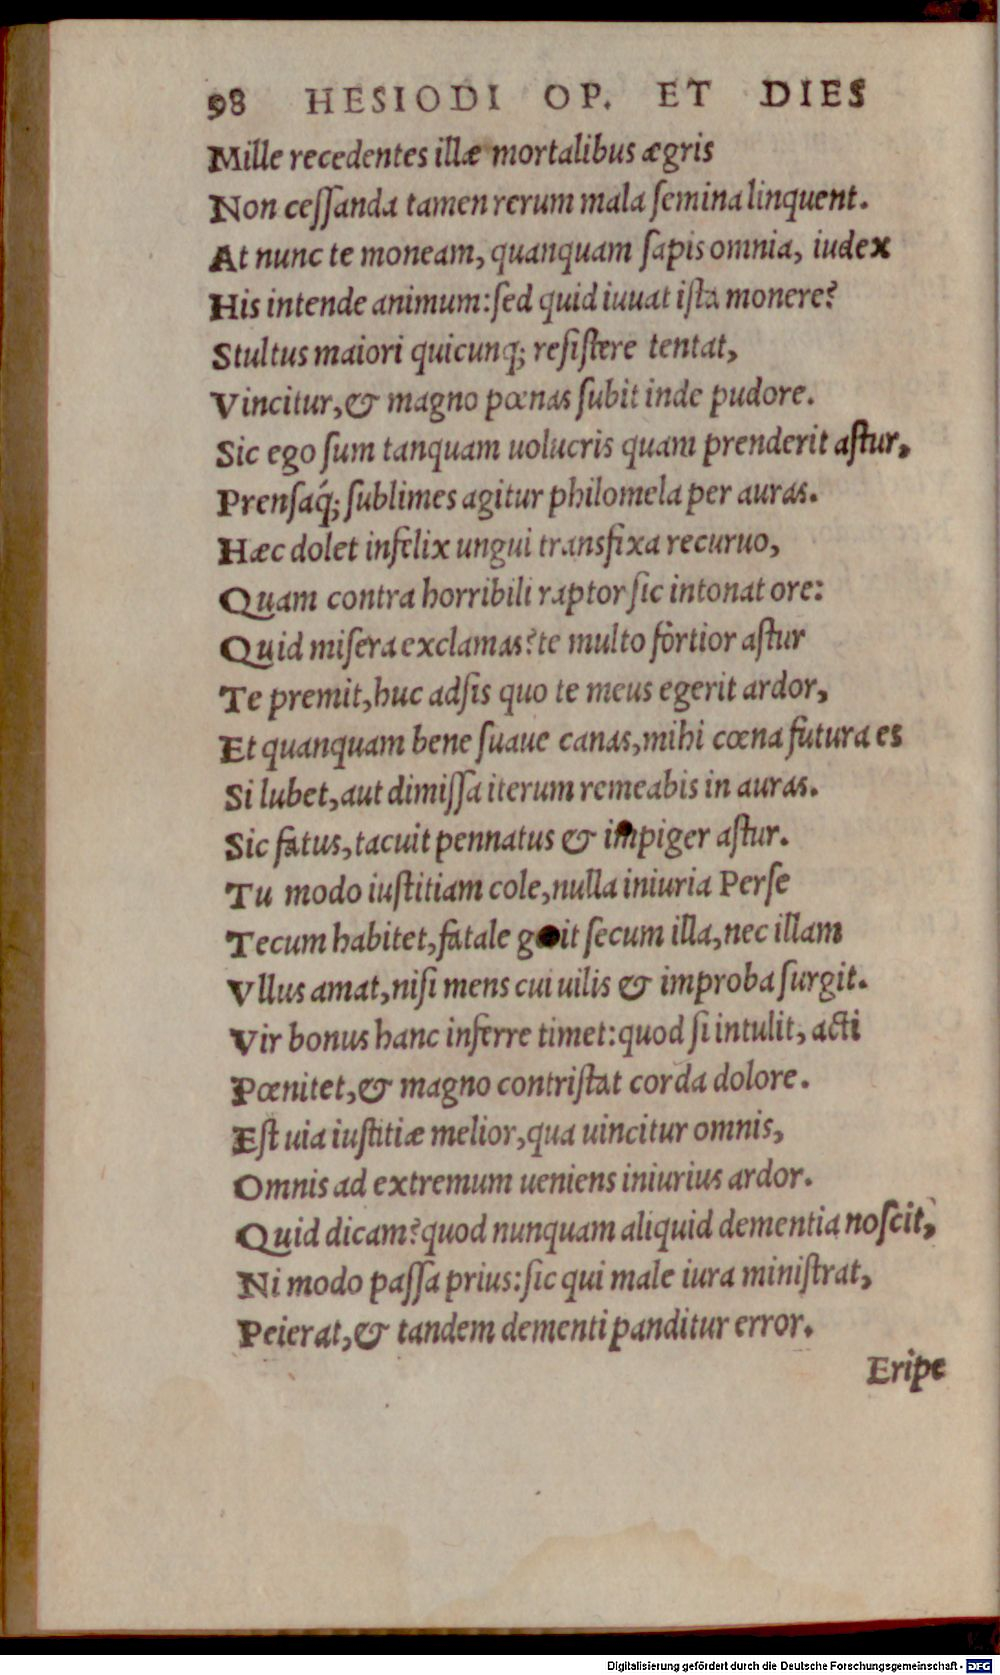 98 HESIODI OP. ET DIES
Mille recedentes illæ mortalibus ægris
Non ceſſanda tamen rerum mala ſemina linquent.
At nunc te moneam, quanquam ſapis omnia, iudex
His intende animum: ſed quid iuuat iſta monere?
Stultus maiori quicunq; reſiſtere tentat,
Vincitur, & magno pœnas ſubit inde pudore.
Sic ego ſum tanquam uolucris quam prenderit aſtur,
Prenſaq́; ſublimes agitur philomela per auras.
Hæc dolet infelix ungui transfixa recuruo,
Quam contra horribili raptor ſic intonat ore:
Quid miſera exclamas? te multo fortior aſtur
Te premit, huc adſis quo te meus egerit ardor,
Et quanquam bene ſuaue canas, mihi cœna futura es
Si lubet, aut dimiſſa iterum remeabis in auras.
Sic fatus, tacuit pennatus & impiger aſtur.
Tu modo iuſtitiam cole, nulla iniuria Perſe
Tecum habitet, fatale ſecum illa, nec illam
Vllus amat, niſi mens cui uilis & improba ſurgit.
Vir bonus hanc inferre timet: quod ſi intulit, acti
Pœnitet, & magno contriſtat corda dolore.
Eſt uia iuſtitiæ melior, qua uincitur omnis,
Omnis ad extremum ueniens iniurius ardor.
Quid dicam? quod nunquam aliquid dementia noſcit,
Ni modo paſſa prius: ſic qui male iura miniſtrat,
Peierat, & tandem dementi panditur error.
Eripe
Digitalisierung gefördert durch die Deutsche Forschungsgemeinschaft - DFG